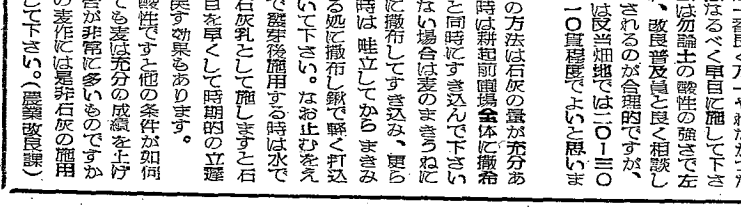 なるべく早目に施して下さ
は勿論土の酸性の強さで左
されるのが合理的ですが、
、改良普及員と良く相談し
は反当畑地では二〇―三〇
一〇貫程度でよいと思いま
の方法は石灰の量が充分あ
時は耕起前圃場全体に撒布
と同時にすき込んで下さい
ない場合は麦のまきうねに
に撒布してすき込み、更ら
時は 畦立してから まきみ
る処に撒布し鍬で軽く打込
いて下さい。なお止むをえ
で発芽後施用する時は水で
石灰乳として施しますと石
目を早くして時期的の立遅
戻す効果もあります。
酸性ですと他の条件が如何
ても麦は充分の成績を上げ
合が非常に多いものですか
の麦作には是非石灰の施用
して下さい。(農業改良課)